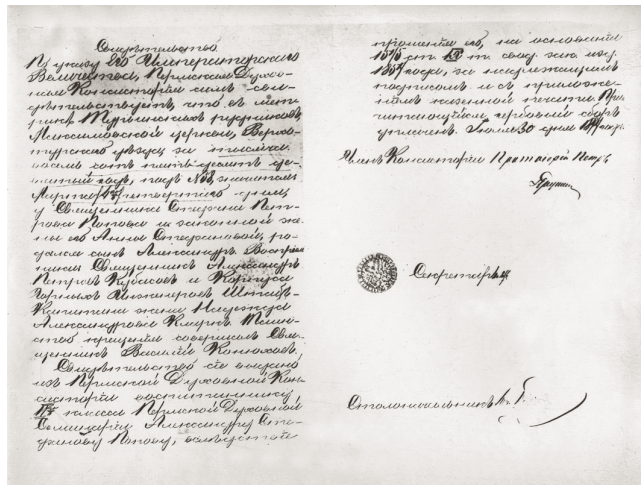 Свидѣтельство
По указу Его Императорскаго
Величества, Пермская Духов-
ная Консисторія симъ сви-
дѣтельствуетъ, что въ метри-
кахъ Турьинскихъ рудниковъ,
Максимовской церкви, Верхо-
турскаго уѣзда за тысяча
восемь сотъ пятьдесятъ де-
вятый годъ, подъ № значится:
Марта четвертаго дня
у Священника Стефана Пет-
рова Попова и законной же-
ны его Анны Стефановой, ро-
дился сынъ Александръ. Воспріем-
ники Священникъ Александръ
Петровъ и Корпуса
Горныхъ Инженеровъ Штабсъ-
Капитана жена Надежда
Александровна. Таин-
ство крещенія совершалъ Свя-
щенникъ Василій
Свидѣтельство сіе выдано
изъ Пермской Духовной Кон-
систоріи воспитаннику
класса Пермской Духовной
Семинаріи Александру Сте-
фанову Попову, вслѣдствіе
прошенія его, на основаніи
ст. свод. зак. изд.
1857 года, за надлежащимъ
подписомъ и съ приложе-
ніемъ казенной печати. При-
читающійся гербовый сборъ
уплаченъ. Іюля 30 дня
Членъ Консисторіи Протоіерей Петръ
Секретарь
Столоначальникъ